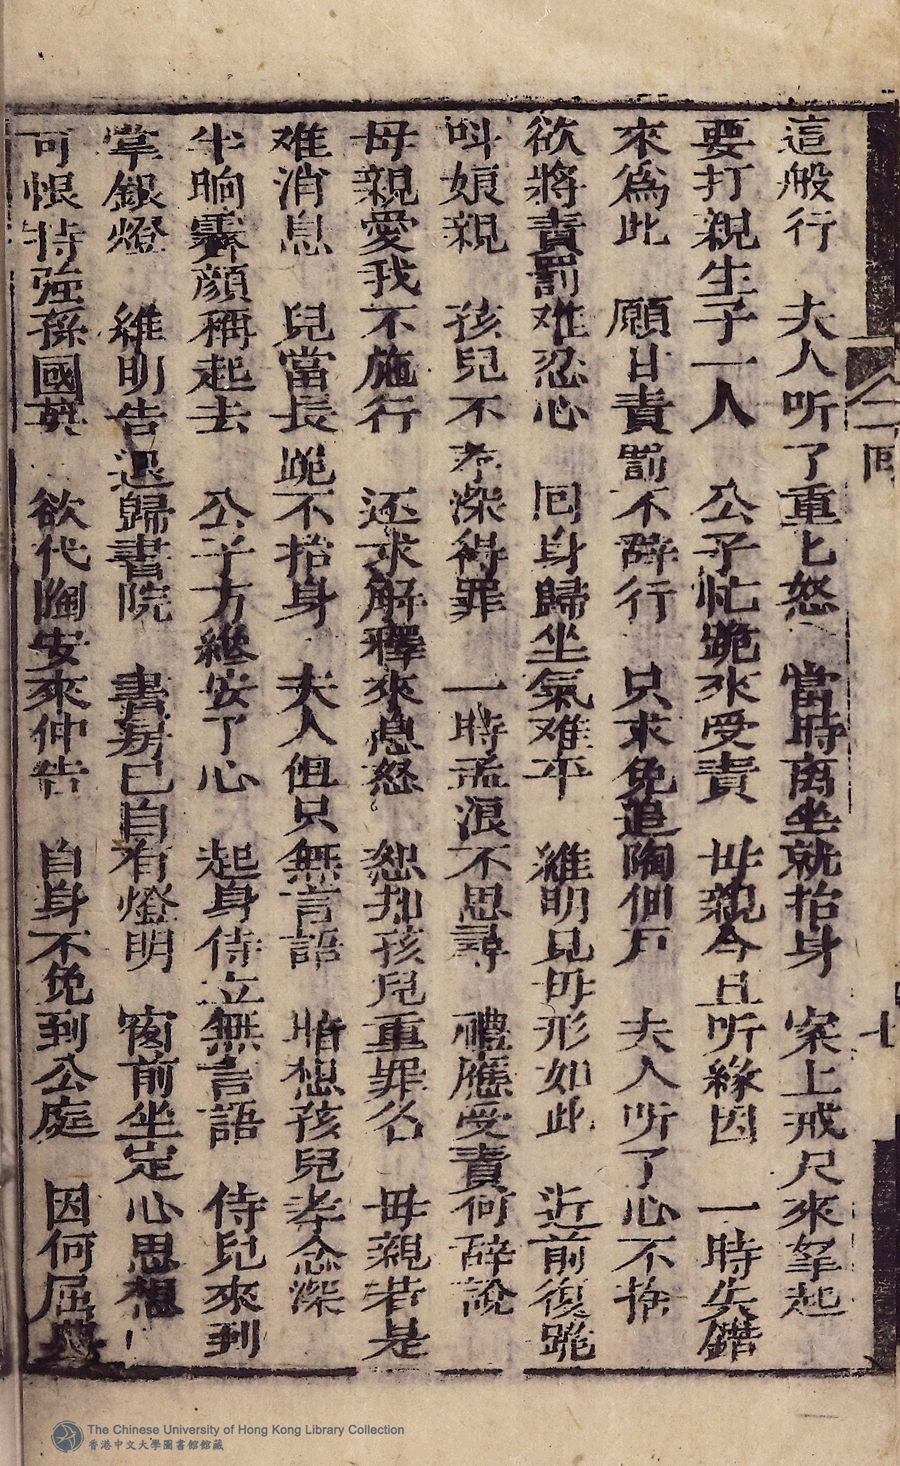 這般行　夫人听了重匕怒　當時离坐就抬身　案上戒尺來拿起
要打親生子一人　公子忙跪來受責　毋親今且听緣因　一時失錯
來為此　願甘責罰不辭行　只求免追陶佃戶　夫人听了心不捨
欲將責罰难忍心　囘身歸坐氣难平　維明見毋形如此　近前復跪
呌娘親　孩兒不孝深得罪　一時孟浪不思尋　禮應受責何辭說
母親愛我不施行　还求解釋來息怒　恕却孩兒重罪名　毋親若是
难消息　兒當長跪不抬身　夫人但只無言語　暗想孩兒孝念深
半晌霽顏稱起去　公子方纔安了心　起身侍立無言語　侍兒來到
掌銀燈　維明告退歸書院　書房已自有燈明　窗前坐定心思想
可恨恃強孫國英　欲代陶安來伸告　自身不免到公庭　因何屈
二囘
七
The Chinese University of Hong Kong Library Collection
香港中文大學圖書館館藏